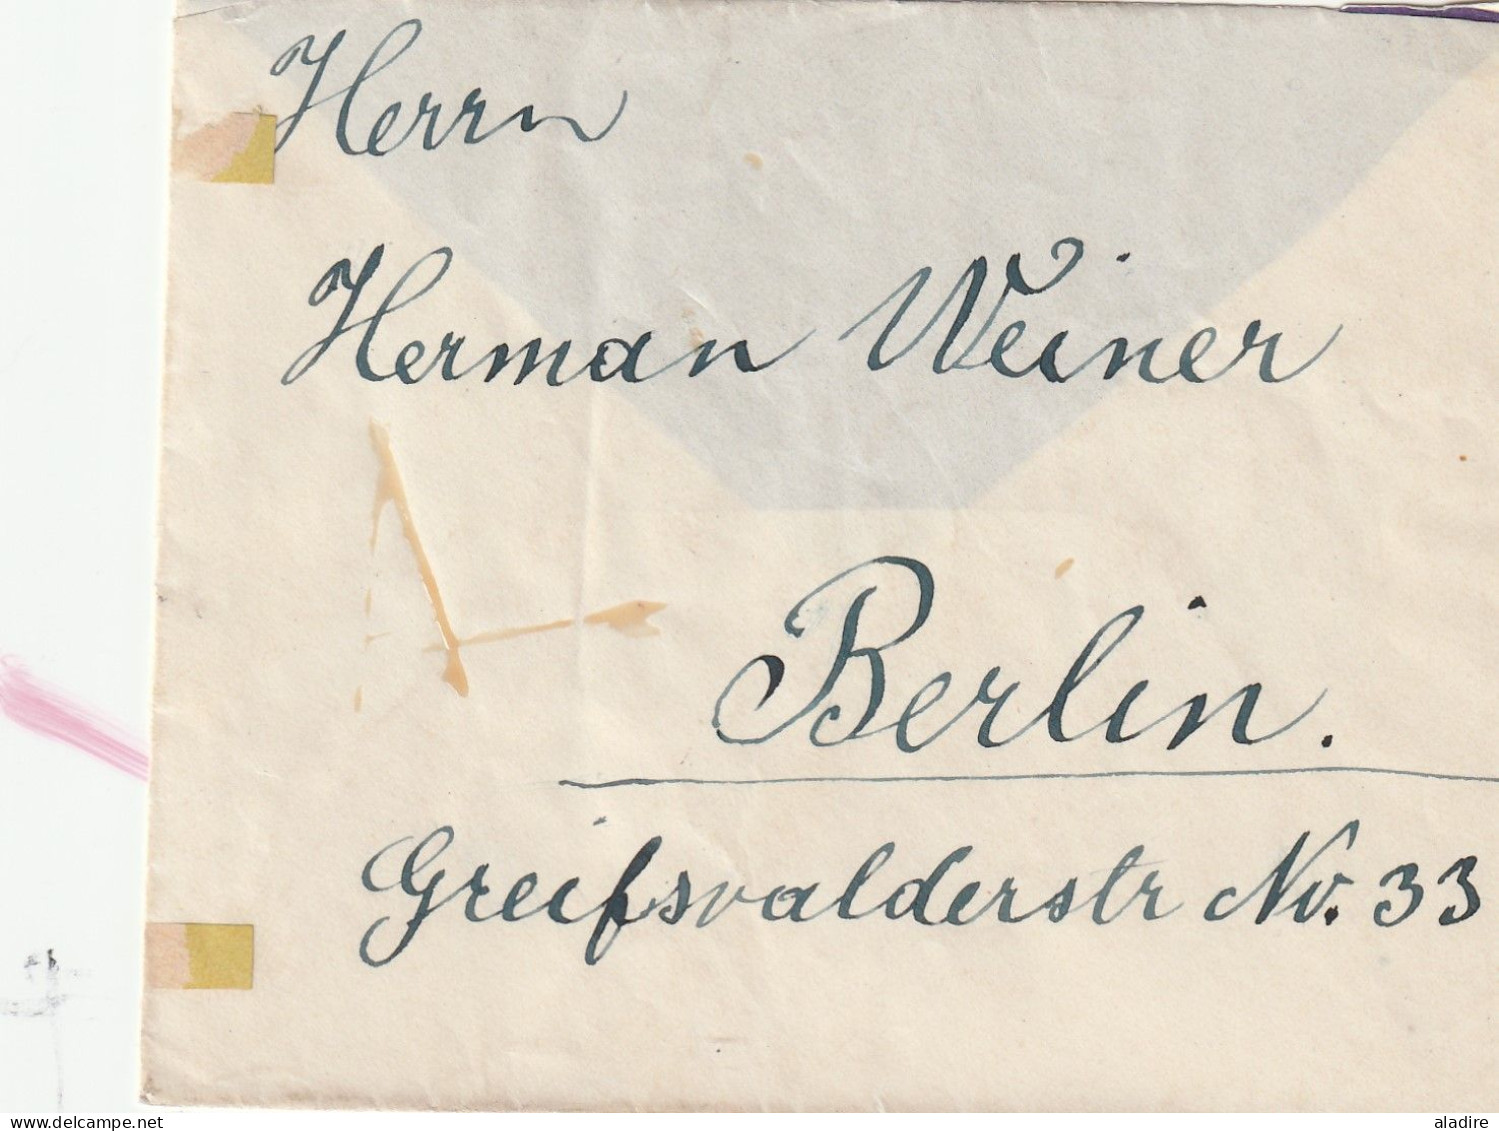 Herrn
Herman Weiner
Berlin.
Greifsvalderstr No. 33
delcampe.net
aladire